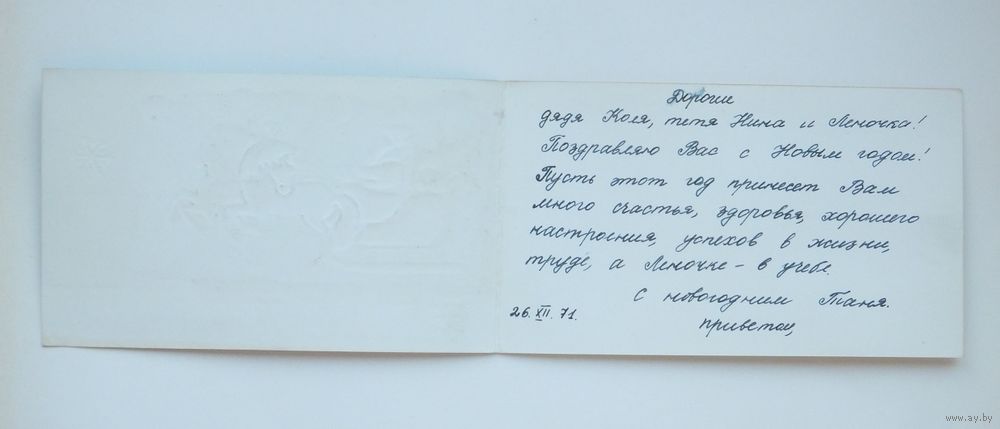 Дорогие
дядя Коля, тетя Нина и Леночка!
Поздравляю Вас с Новым годом!
Пусть этот год принесет Вам
много счастья, здоровья, хорошего
настроения, успехов в жизни,
труде, а Леночке – в учебе.
С новогодним Таня.
приветом,
26.XII.71.
www.ay.by